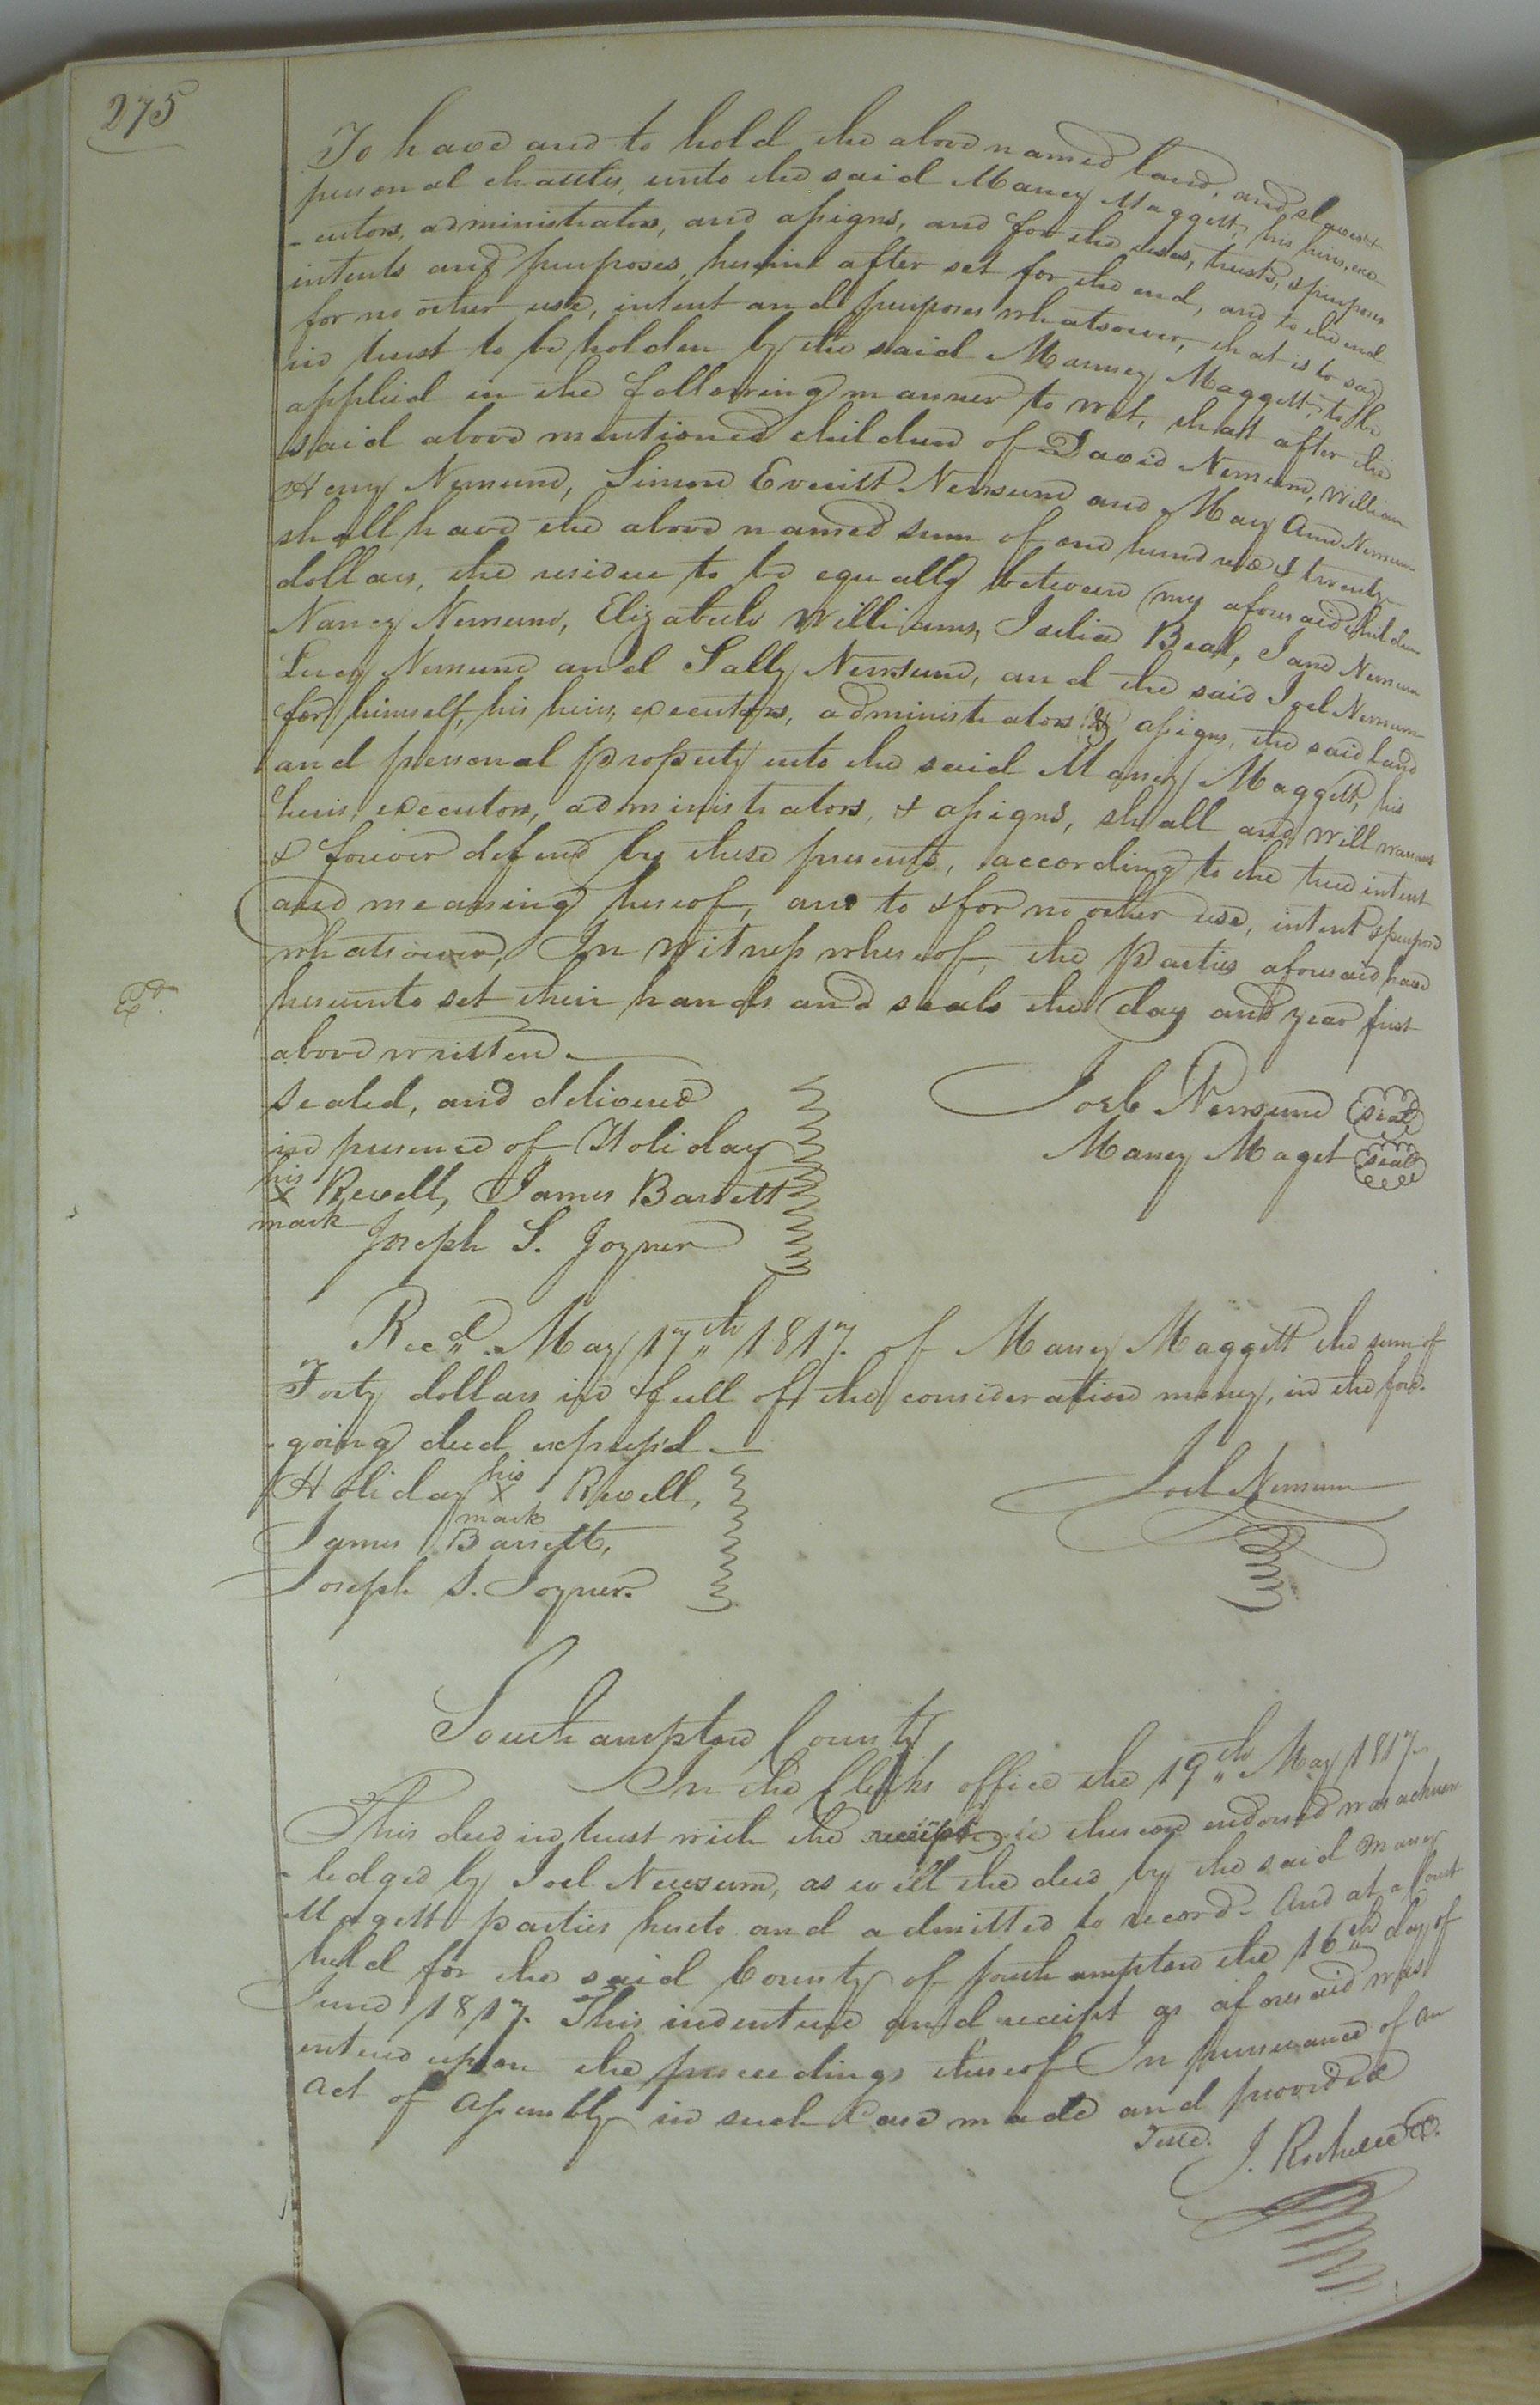 275
To have and to hold the above named land, and slaves &
personal chattles, unto the said Maney Maggett, his heirs, exe
-cutors, administrators, and assigns, and for the uses, trusts, & purposes
intents and purposes, herein after set for the end, and to the end
for no other use, intent and purposes whatsoever, that is to say
in trust to be holden by the said Manney Maggett, to be
applied in the following manner to wit, that after the
said above mentioned children of David Newsum, William
Henry Newsum, Simon Everitt Newsum and May Ann Newsum
shall have the above named sum of one hundred & twenty
dollars, the residue to be equally between my aforesaid children
Nancy Newsum, Elizabeth Williams, Selia Beal, Jane Newsum
Lucy Newsum and Sally Newsum, and the said Joel Newsum
for himself, his heirs, executors, administrators & assigns, the said land
and personal property unto the said Maney Maggett, his
heirs, executors, administrators, & assigns, shall and will warrant
& forever defend by these presents, according to the true intent
and meaning hereof, and to & for no other use, intent & purpose
whatsoever, In witness whereof, the Parties aforesaid have
hereunto set their hands and seals the day and year first
above written.
Sealed, and delivered
in presence of Holiday
his
x Revell, James Barrett
mark
Joseph S. Joyner
Joel Newsum (seal)
Maney Maget (seal)
Ex.d
Rec.d May 17th 1817. of Maney Maggett the sum of
Forty dollars in full of the consideration money, in the fore-
-going deed expres'd —
Holiday his x Revell,
mark
James Barrett,
Joseph S. Joyner.
Joel Newsum
Southampton County
In the Clerks office the 19th May 1817.
This deed in trust with the receipt thereon endorsed was acknow
-ledged by Joel Newsum, as well the deed by the said Maney
Magett parties hereto and admitted to record. And at a Court
held for the said County of Southampton the 16th day of
June 1817. This indenture and receipt as aforesaid was
entered upon the proceedings thereof In pursuance of an
Act of Assembly in such Case made and provided
Teste.
J. Rochelle